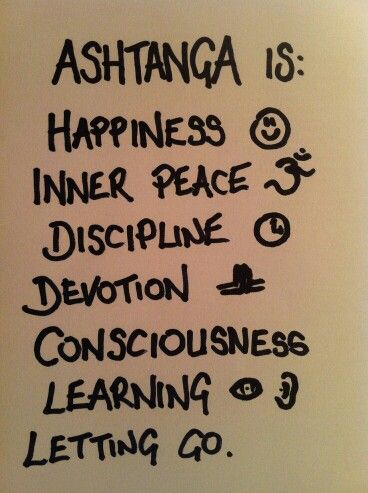 ASHTANGA IS:
HAPPINESS
INNER PEACE ॐ
DISCIPLINE
DEVOTION
CONSCIOUSNESS
LEARNING
LETTING GO.